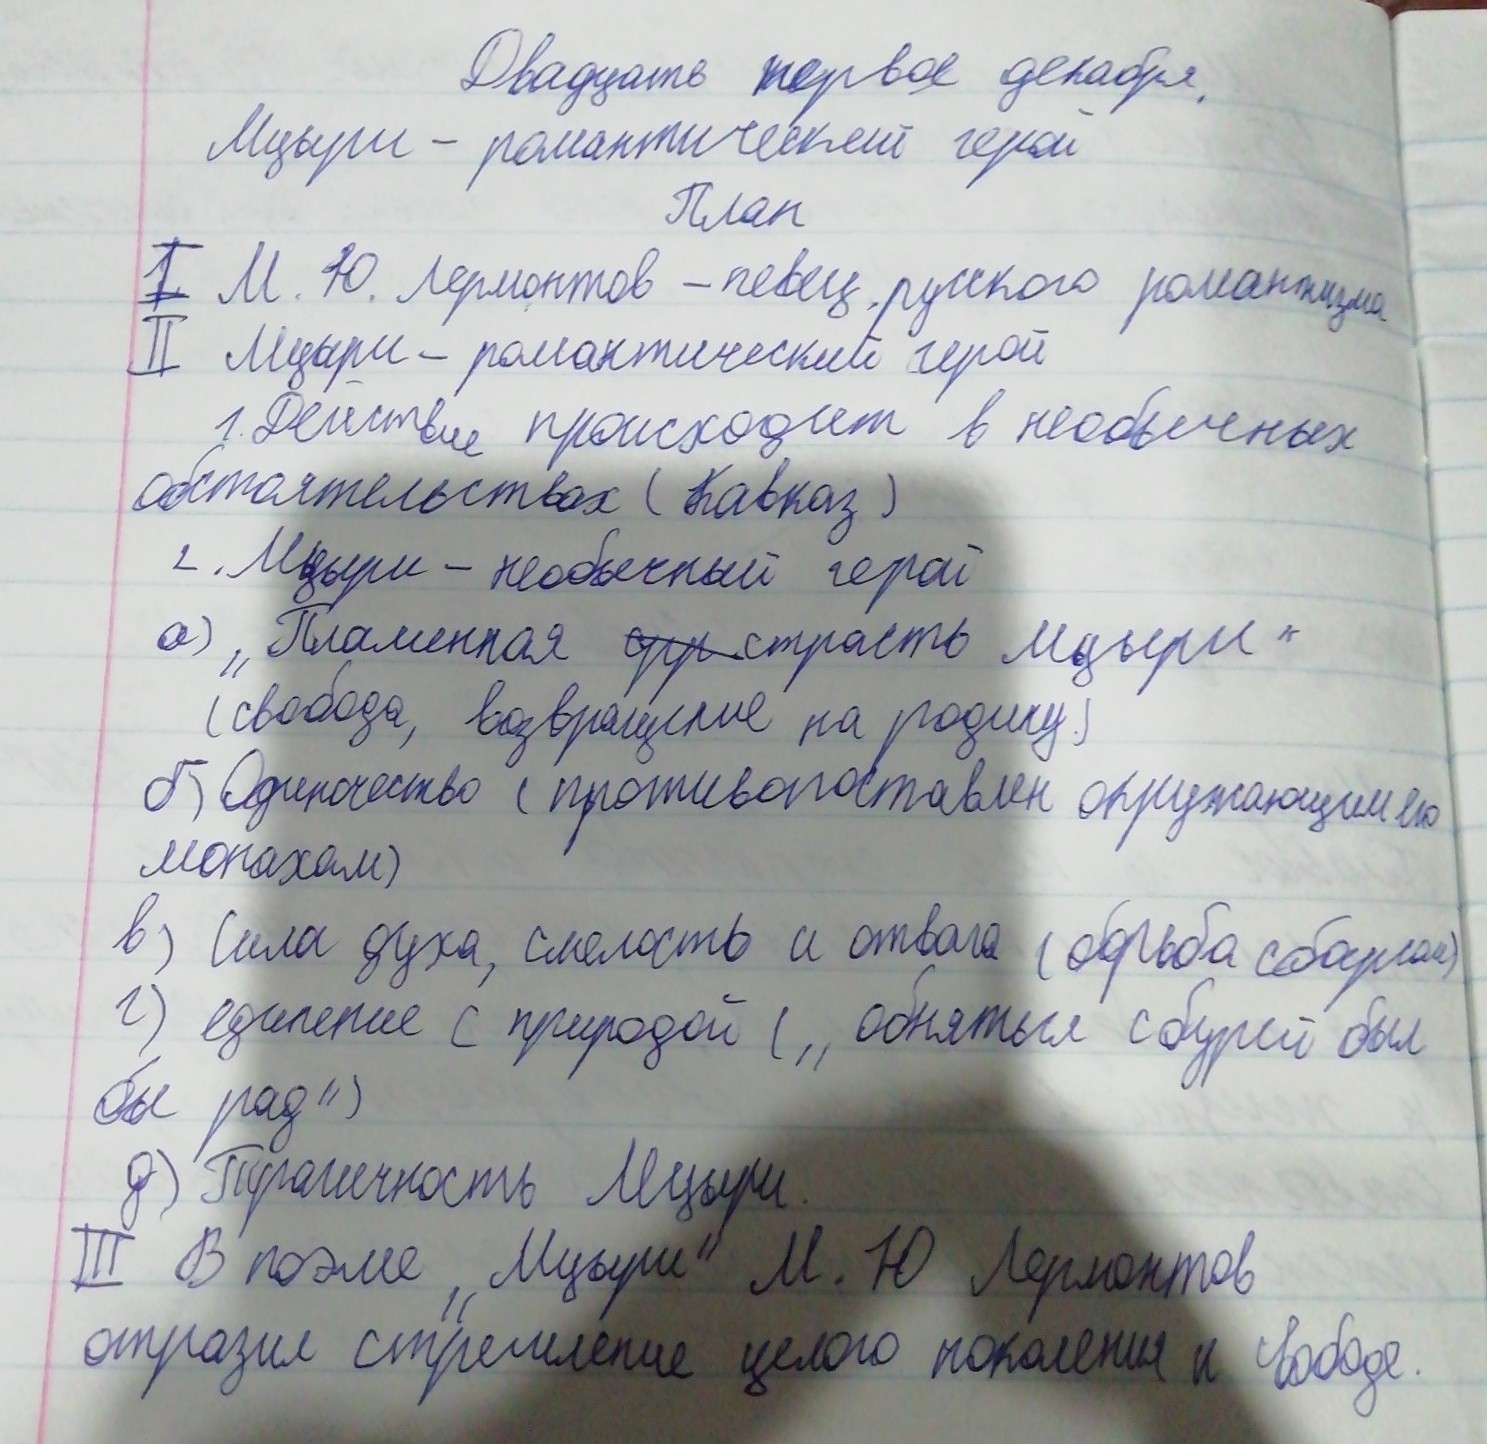 Двадцать первое декабря.
Мцыри - романтический герой
План
I М. Ю. Лермонтов - певец русского романтизма
II Мцыри - романтический герой
1. Действие происходит в необычных
обстоятельствах (Кавказ)
2. Мцыри - необычный герой
а) „Пламенная страсть Мцыри"
(свобода, возвращение на родину)
б) Одиночество (противопоставлен окружающим его
монахам)
в) Сила духа, смелость и отвага (борьба с барсом)
г) единение с природой („обняться с бурей был
бы рад")
д) Трагичность Мцыри.
III В поэме „Мцыри" М. Ю Лермонтов
отразил стремление целого поколения к свободе.